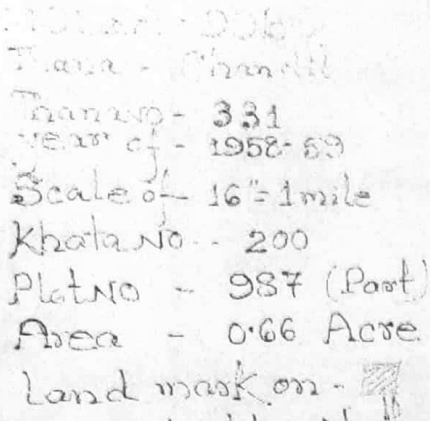 Thana - Chandil
Thana No - 331
Year of - 1958-59
Scale of - 16"=1mile
Khata No - 200
Plot No - 987 (Part)
Area - 0.66 Acre
Land mark on -